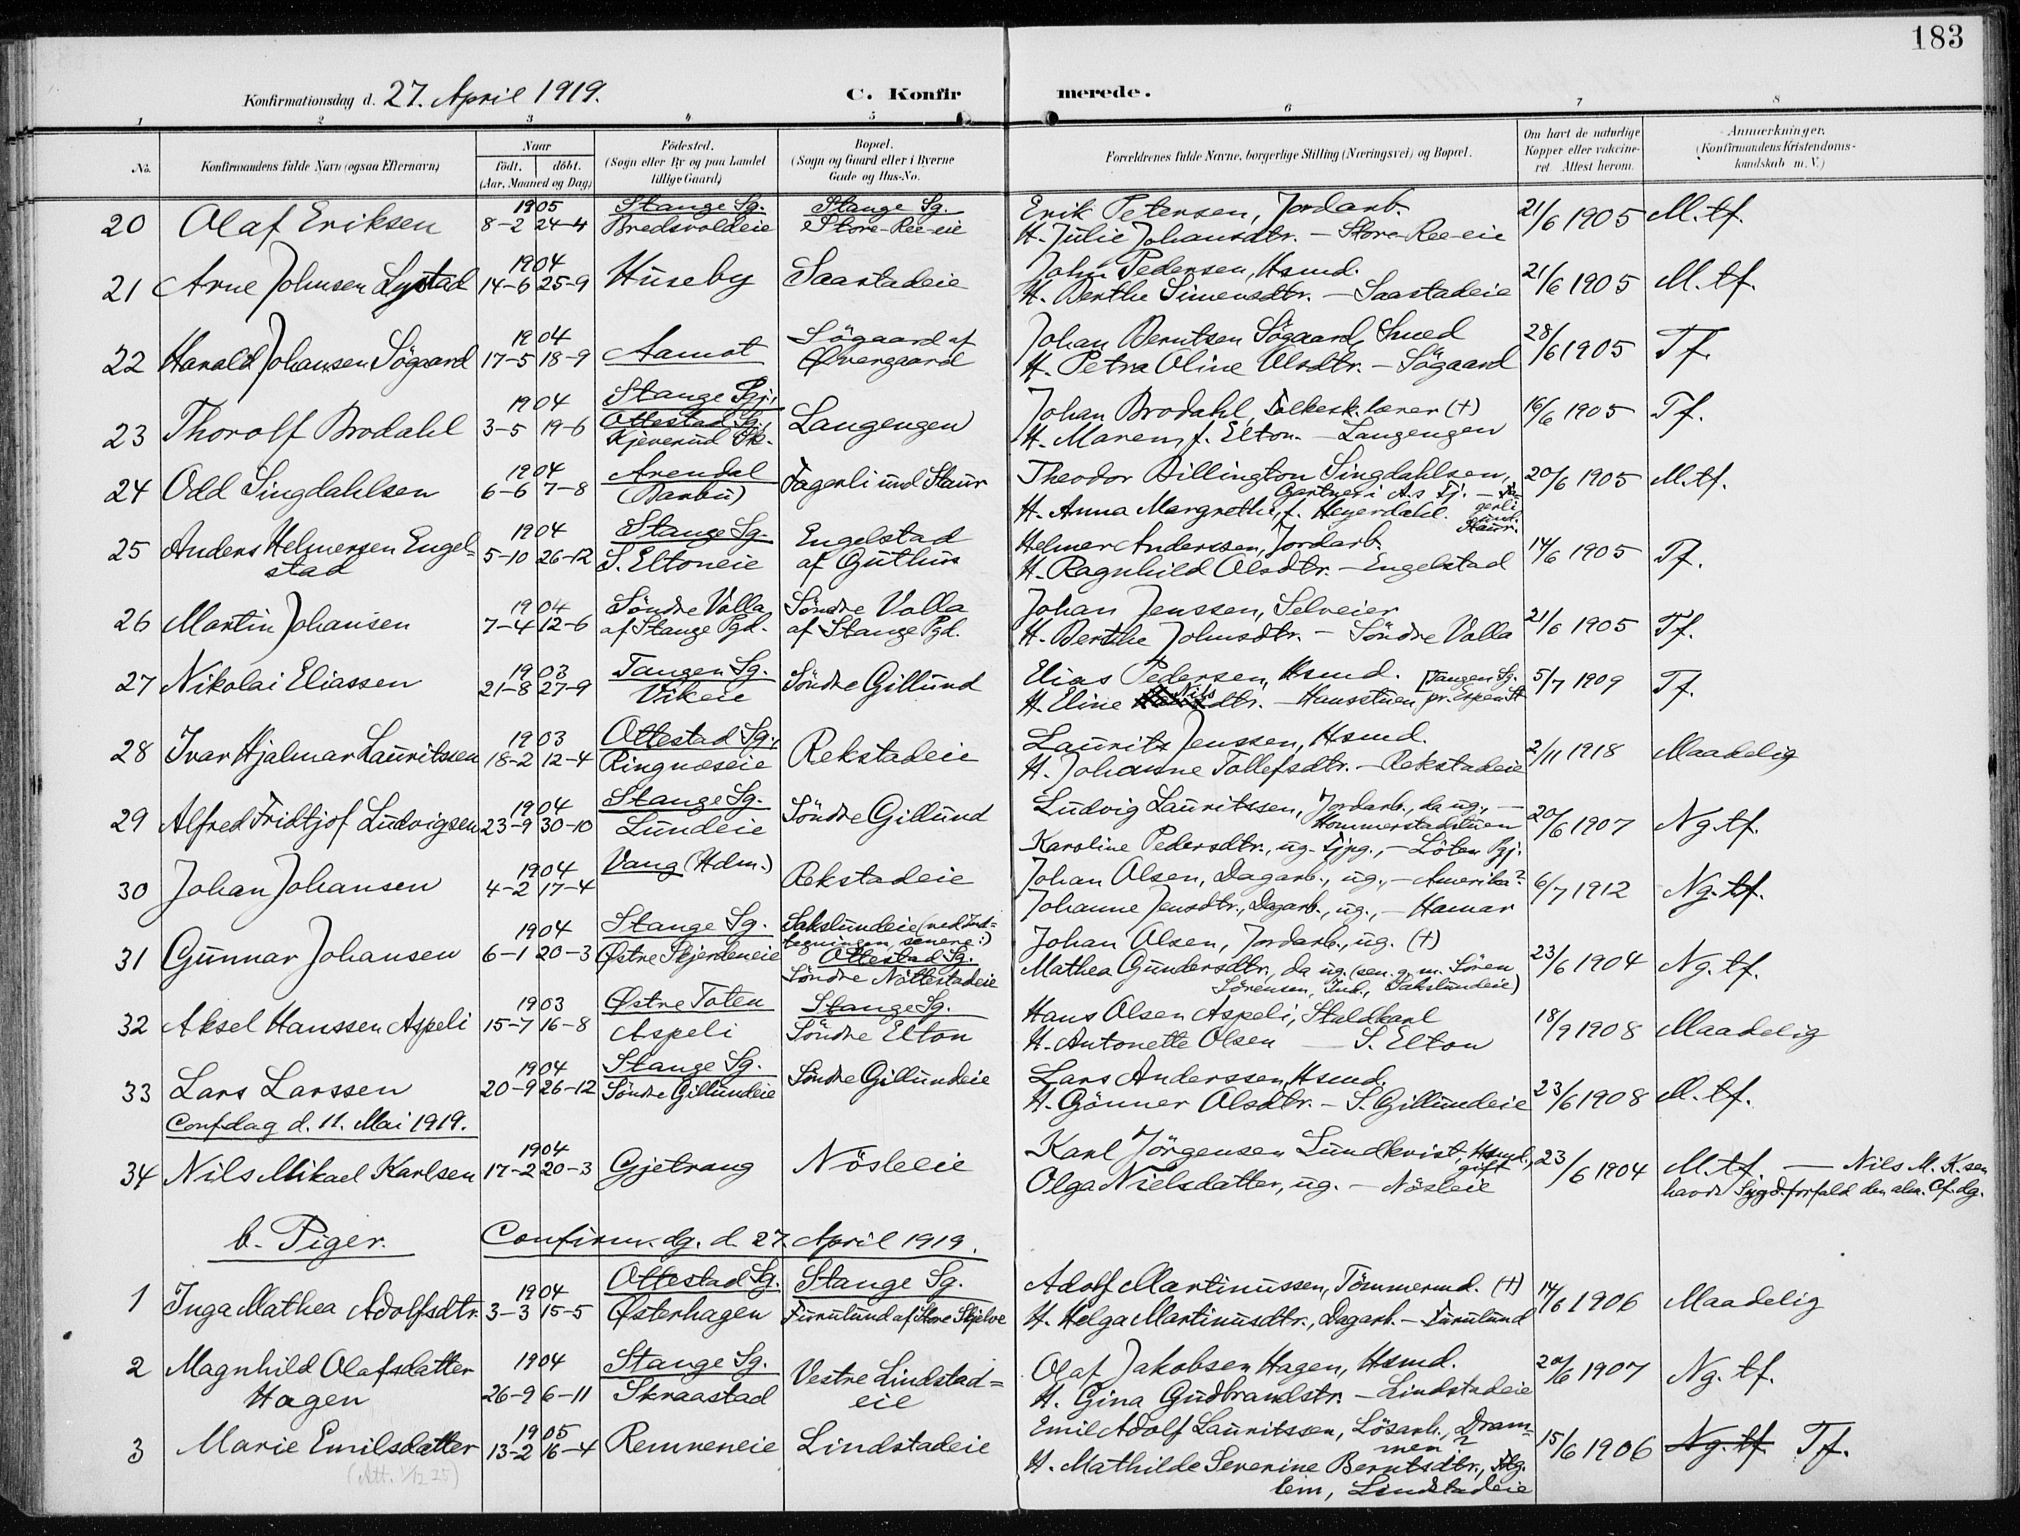 183
Konfirmationsdag d. 27. April 1919.
C. Konfirmerede.
1 2 3 4 5 6 7 8
No.
Konfirmandens fulde Navn (ogsaa Efternavn)
Naar
födt. döbt.
(Aar, Maaned og Dag)
Födested.
(Sogn eller By og paa Landet
tillige Gaard)
Bopæl.
(Sogn og Gaard eller i Byerne
Gade og Hus-No.
Forældrenes fulde Navne, borgerlige Stilling (Næringsvei) og Bopæl.
Om havt de naturlige
Kopper eller vakcine-
ret Attest herom.
Anmærkninger.
(Konfirmandens Kristendoms-
kundskab m. V.)
20 Olaf Eriksen 1905 8-2 24-4 Stange Sg. Bredsvoldeie Stange Sg. Store-Ree-eie
Erik Petersen, Jordarb.
H. Julie Johansdtr. - Store-Ree-eie 21/6 1905 M.tf.
21 Arne Johnsen Lystad 1904 14-6 25-9 Huseby Saastadeie
John Pedersen, Hsmd.
H. Berthe Simensdtr. - Saastadeie 21/6 1905 M.tf.
22 Harald Johansen Sögaard 1904 17-5 18-9 Aamot Sögaard af Øvergaard
Johan Berntsen Sögaard, Smed
H. Petra Oline Olsdtr. - Sögaard 28/6 1905 Tf.
23 Thorolf Brodahl 1904 3-5 19-6 Stange Pgj., Ottestad Sg., Kjeverud Sk. Langengen
Johan Brodahl, Folkesk.lærer (+)
H. Maren, f. Elton. - Langengen 16/6 1905 Tf.
24 Odd Singdahlsen 1904 6-6 7-8 Arendal (Barbu) Fagerli und. Staur
Theodor Billington Singdahlsen,
Gartner i A.s Tj. - Fa-
H. Anna Margrethe, f. Heyerdahl. gerli
und. Staur. 20/6 1905 M.tf.
25 Anders Helmersen Engel=
stad 1904 5-10 26-12 Stange Sg. S. Eltoneie Engelstad af Guthus
Helmer Anderssen, Jordarb.
H. Ragnhild Olsdtr. - Engelstad 14/6 1905 Tf.
26 Martin Johansen 1904 7-4 12-6 Söndre Volla af Stange Pgd. Söndre Volla af Stange Pgd.
Johan Jenssen, Selveier
H. Berthe Johnsdtr. - Söndre Volla 21/6 1905 Tf.
27 Nikolai Eliassen 1903 21-8 27-9 Tangen Sg. Vikeie Söndre Gillund
Elias Pedersen, Hsmd. [Tangen Sg.
H. Eline Nilsdtr. - Hansstuen, pr. Espen St 5/7 1909 Tf.
28 Ivar Hjalmar Lauritssen 1903 18-2 12-4 Ottestad Sg., Ringnæseie Rekstadeie
Laurits Jenssen, Hsmd.
H. Johanne Tollefsdtr. - Rekstadeie 2/11 1918 Maadelig
29 Alfred Fridtjof Ludvigsen 1904 23-9 30-10 Stange Sg. Lundeie Söndre Gillund
Ludvig Lauritssen, Jordarb., da ug., -
Hommerstadstuen
Karoline Pedersdtr., ug. Tjpg., - Löten Pgj. 20/6 1907 Ng.tf.
30 Johan Johansen 1904 4-2 17-4 Vang (Hdm.) Rekstadeie
Johan Olsen, Dagarb., ug., - Amerika?
Johanne Jensdtr., Dagarb., ug., - Hamar 6/7 1912 Ng.tf.
31 Gunnar Johansen 1904 6-1 20-3 Stange Sg. Østre Skjerdeneie Sakslundeie (ved Ind=
tegningen, senere:) Ottestad Sg. Söndre Nöttestadeie
Johan Olsen, Jordarb., ug. (+)
Mathea Gundersdtr., da ug. (sen. g. m. Sören
Sörensen, Ind., Sakslundeie) 23/6 1904 Ng.tf.
32 Aksel Hanssen Aspeli 1903 15-7 16-8 Østre Toten Aspeli Stange Sg. Söndre Elton
Hans Olsen Aspeli, Staldkarl
H. Antonette Olsen - S. Elton 18/9 1908 Maadelig
33 Lars Larssen 1904 20-9 26-12 Stange Sg. Söndre Gillundeie Söndre Gillundeie
Lars Anderssen, Hsmd.
H. Gönner Olsdtr. - S. Gillundeie 23/6 1908 M.tf.
Confdag d. 11. Mai 1919.
34 Nils Mikael Karlsen 1904 17-2 20-3 Gjetvang Nösleeie
Karl Jörgensen Lundkvist, Hsmd.,
gift
Olga Nielsdatter, ug. - Nösleie 23/6 1904 M.tf. - Nils M. K.sen
havde Sygd.forfald den alm. Cf.dg.
b. Piger. Confirm. dg. d. 27. April 1919.
1 Inga Mathea Adolfsdtr. 1904 3-3 15-5 Ottestad Sg. Østerhagen Stange Sg. Furulund af Store Skjelve
Adolf Martinussen, Tömmermd. (+)
H. Helga Martinusdtr., Dagarb. - Furulund 14/6 1906 Maadelig
2 Magnhild Olafsdatter
Hagen 1904 26-9 6-11 Stange Sg. Skraastad Vestre Lindstad=
eie
Olaf Jakobsen Hagen, Hsmd.
H. Gina Gudbrandstr. - Lindstadeie 20/6 1907 Ng.tf.
3 Marie Emilsdatter 1905 13-2 16-4 Remneneie Lindstadeie
(Att. 1/12 25)
Emil Adolf Lauritssen, Lösarb., Dram=
men?
H. Mathilde Severine Berntsdtr.,
lem, Lindstadeie 15/6 1906 Ng.tf. Tf.